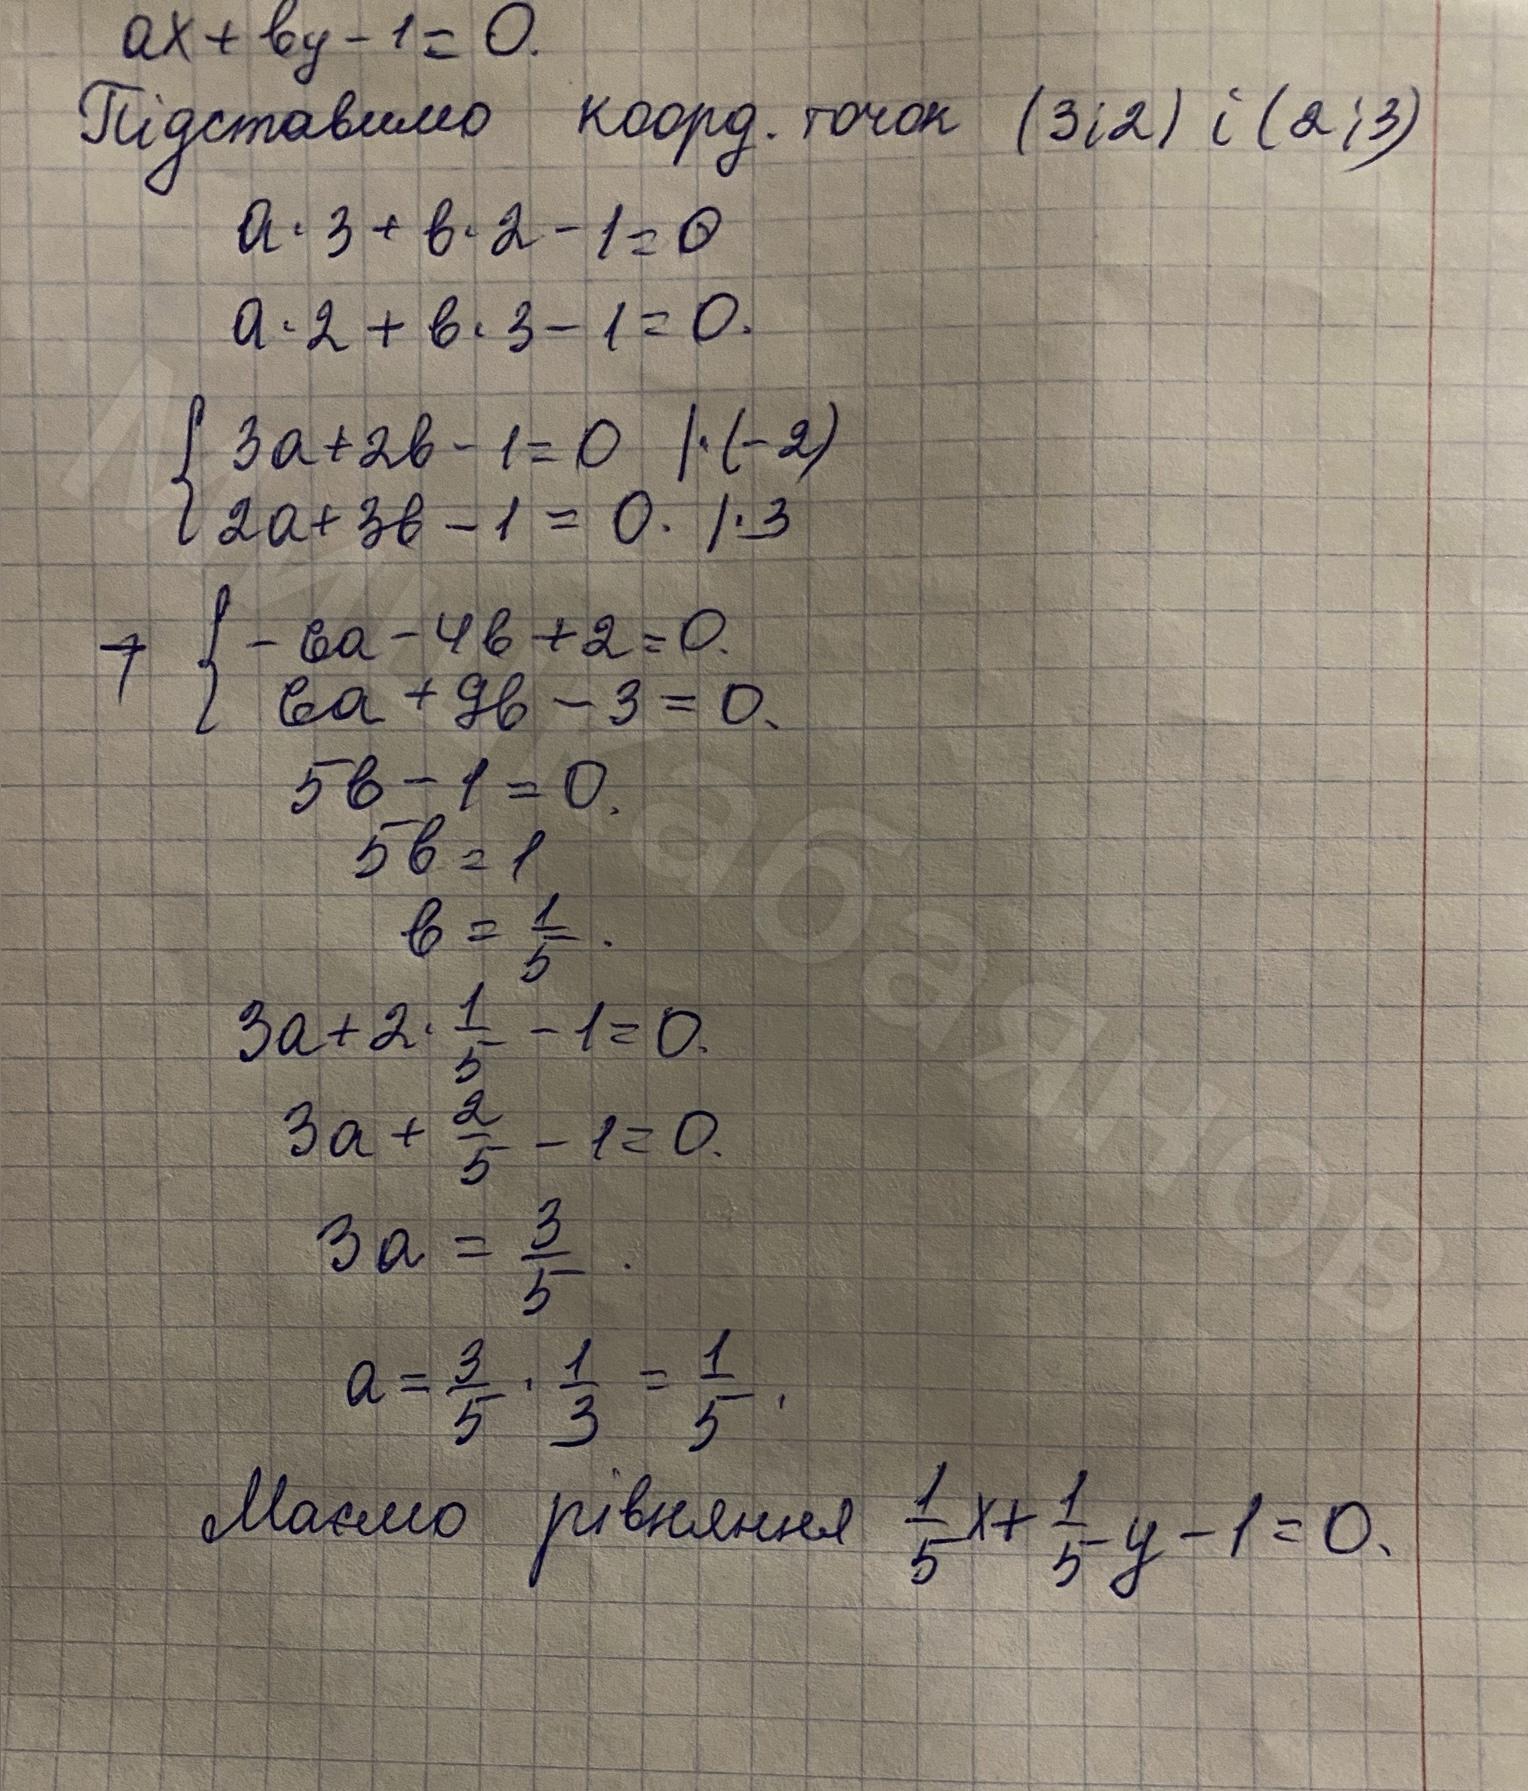 ax + by - 1 = 0.
Підставимо коорд. точок (3;2) і (2;3)
a·3 + b·2 - 1 = 0
a·2 + b·3 - 1 = 0.
{ 3a + 2b - 1 = 0 |·(-2)
2a + 3b - 1 = 0. |·3
+ { -6a - 4b + 2 = 0.
6a + 9b - 3 = 0.
5b - 1 = 0.
5b = 1
b = 1/5.
3a + 2·1/5 - 1 = 0.
3a + 2/5 - 1 = 0.
3a = 3/5.
a = 3/5 · 1/3 = 1/5.
Маємо рівняння 1/5x + 1/5y - 1 = 0.